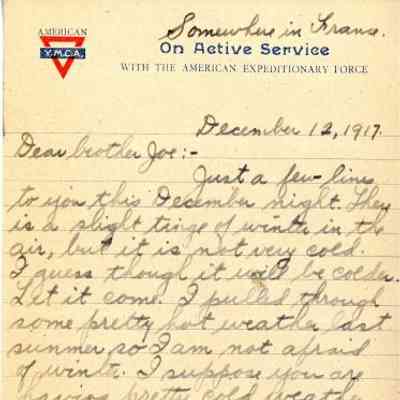 AMERICAN
Y.M.C.A.
Somewhere in France.
On Active Service
WITH THE AMERICAN EXPEDITIONARY FORCE
December 12, 1917.
Dear brother Joe:-
Just a few lines
to you this December night. There
is a slight tinge of winter in the
air, but it is not very cold.
I guess though it will be colder.
Let it come. I pulled through
some pretty hot weather last
summer so I am not afraid
of winter. I suppose you are
having pretty cold weather